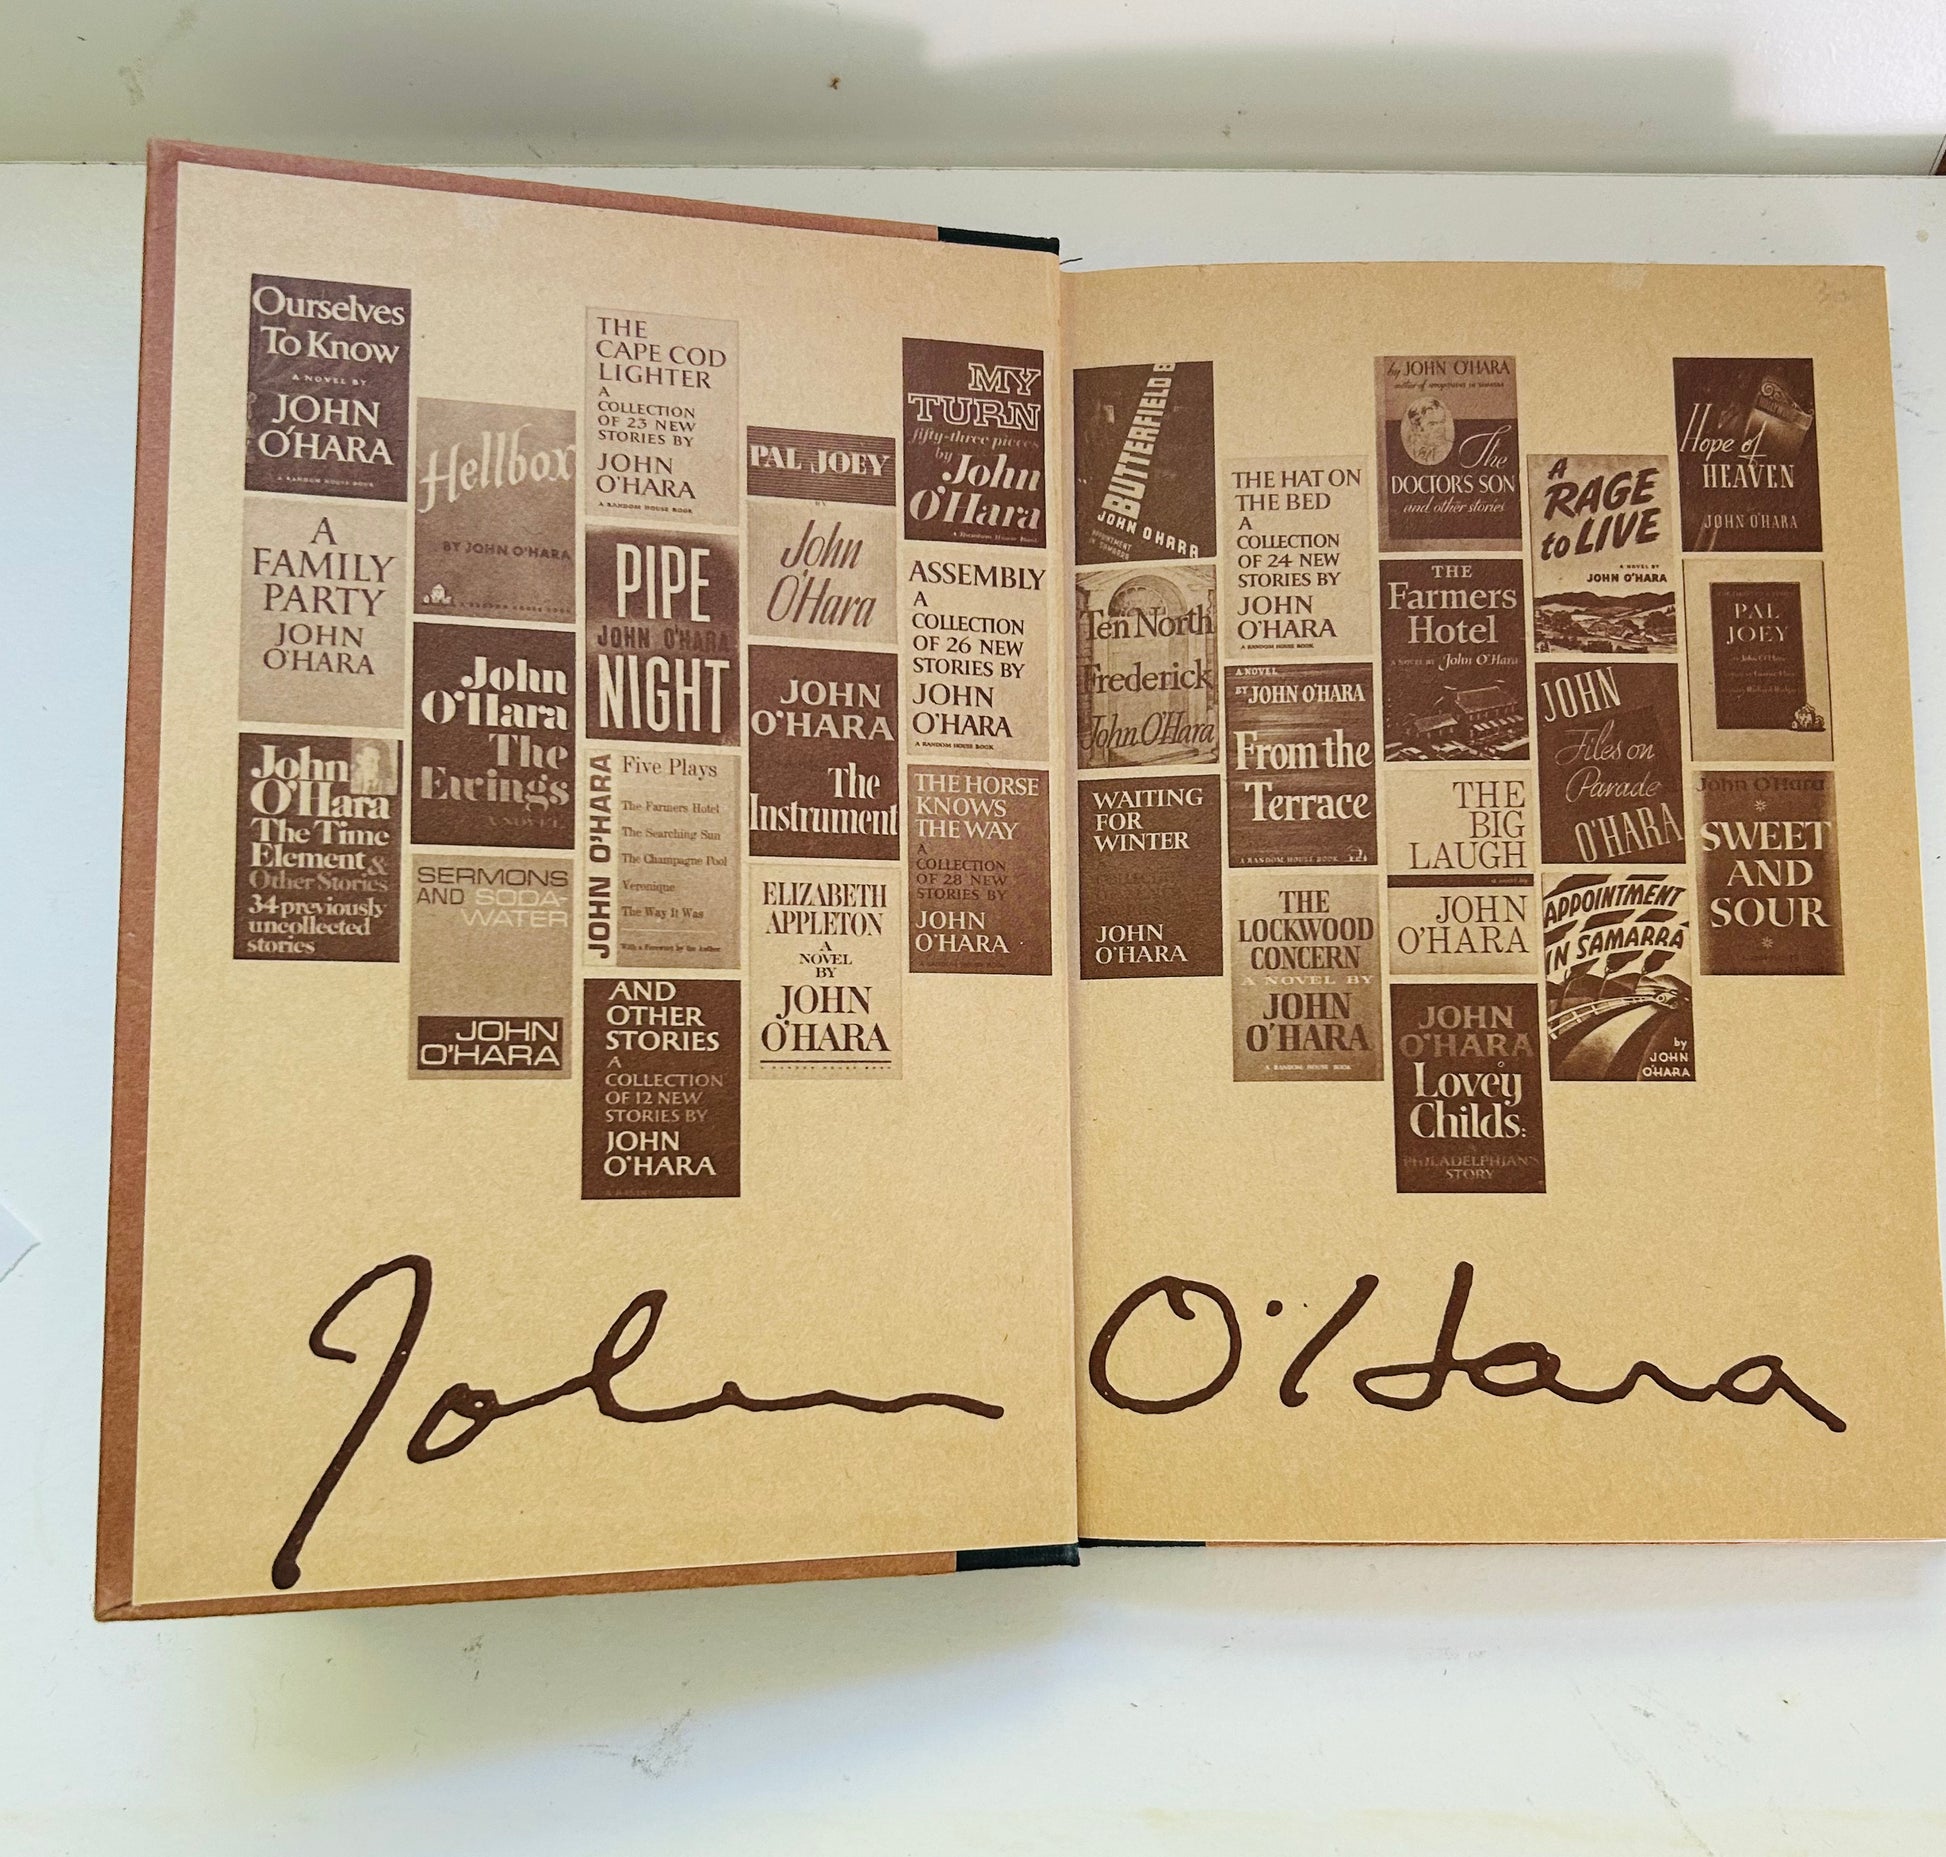 Ourselves
To Know
A NOVEL BY
JOHN
O'HARA
A RANDOM HOUSE BOOK
A
FAMILY
PARTY
JOHN
O'HARA
John
O'Hara
The Time
Element &
Other Stories
34 previously
uncollected
stories
Hellbox
BY JOHN O'HARA
A RANDOM HOUSE BOOK
John
O'Hara
The
Ewings
A NOVEL
SERMONS
AND SODA-
WATER
JOHN
O'HARA
THE
CAPE COD
LIGHTER
A
COLLECTION
OF 23 NEW
STORIES BY
JOHN
O'HARA
A RANDOM HOUSE BOOK
PIPE
JOHN O'HARA
NIGHT
JOHN O'HARA
Five Plays
The Farmers Hotel
The Searching Sun
The Champagne Pool
Veronique
The Way It Was
With a Foreword by the Author
AND
OTHER
STORIES
A
COLLECTION
OF 12 NEW
STORIES BY
JOHN
O'HARA
PAL JOEY
BY
John
O'Hara
JOHN
O'HARA
The
Instrument
ELIZABETH
APPLETON
A
NOVEL
BY
JOHN
O'HARA
A RANDOM HOUSE BOOK
MY
TURN
fifty-three pieces
by
John
O'Hara
A Random House Book
ASSEMBLY
A
COLLECTION
OF 26 NEW
STORIES BY
JOHN
O'HARA
A RANDOM HOUSE BOOK
THE HORSE
KNOWS
THE WAY
A
COLLECTION
OF 28 NEW
STORIES BY
JOHN
O'HARA
BUTTERFIELD 8
JOHN O'HARA
APPOINTMENT
IN SAMARRA
Ten North
Frederick
John O'Hara
WAITING
FOR
WINTER
JOHN
O'HARA
THE HAT ON
THE BED
A
COLLECTION
OF 24 NEW
STORIES BY
JOHN
O'HARA
A RANDOM HOUSE BOOK
A NOVEL
BY JOHN O'HARA
From the
Terrace
A RANDOM HOUSE BOOK
THE
LOCKWOOD
CONCERN
A NOVEL BY
JOHN
O'HARA
A RANDOM HOUSE BOOK
by JOHN O'HARA
author of APPOINTMENT IN SAMARRA
The
DOCTOR'S SON
and other stories
THE
Farmers
Hotel
A NOVEL BY John O'Hara
THE
BIG
LAUGH
a novel by
JOHN
O'HARA
JOHN
O'HARA
Lovey
Childs:
PHILADELPHIAN'S
STORY
A
RAGE
to LIVE
A NOVEL BY
JOHN O'HARA
JOHN
Files on
Parade
O'HARA
APPOINTMENT
IN SAMARRA
by
JOHN
O'HARA
Hope of
HEAVEN
JOHN O'HARA
PAL
JOEY
John O'Hara
SWEET
AND
SOUR
John O'Hara